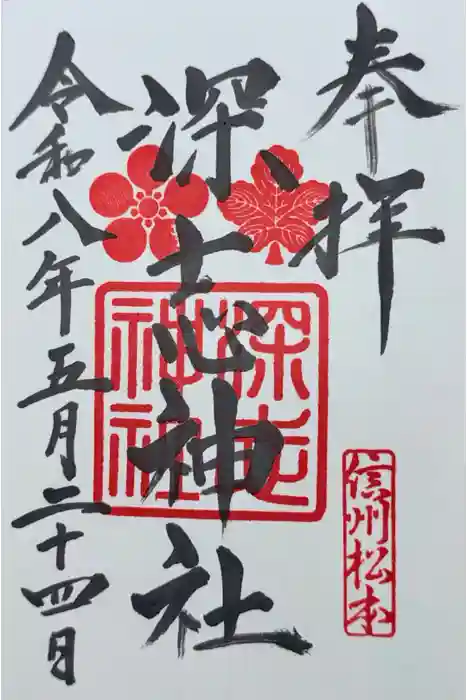 奉拝
深志神社
深志
神社
信州松本
令和八年五月二十四日